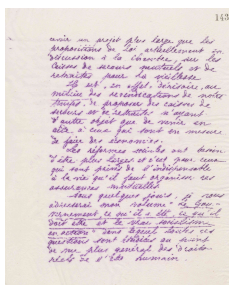 143
avoir un projet plus large que les
propositions de loi actuellement en
discussion à la chambre, sur les
caisses de secours mutuels et de
retraites pour la vieillesse.
Il est, en effet, dérisoire, au
milieu des revendications de notre
temps, de proposer des caisses de
secours et de retraites n'ayant
d'autre objet que de venir en
aide à ceux qui sont en mesure
de faire des économies.
Les réformes ont besoin
d'être plus larges et c'est pour ceux
qui sont privés de l'indispensable
à la vie qu'il faut organiser ces
assurances mutuelles.
Dans quelques jours, je vous
adresserai mon volume "Le Gou-
vernement, ce qu'il a été, ce qu'il
doit être et le vrai socialisme
en action" dans lequel toutes ces
questions sont traitées au point
de vue plus général des droits
de l'être humain